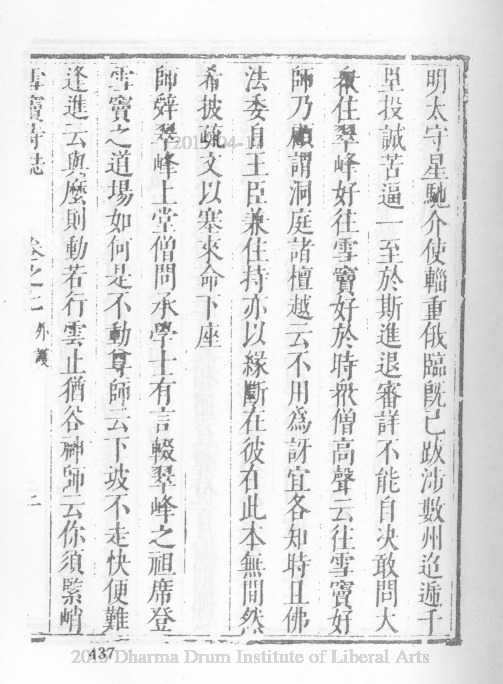 明太守星馳介使輜重俄臨既已跋涉數州迢遞千
里投誠苦逼一至於斯進退審詳不能自決敢問大
眾住翠峰好往雪竇好於時眾僧高聲云往雪竇好
師乃顧謂洞庭諸檀越云不用為訝宜各知時且佛
法委自王臣兼住持亦以緣斷在彼在此本無間然
希披疏文以塞來命下座
師辭翠峰上堂僧問承學士有言輟翠峰之祖席登
雪竇之道場如何是不動尊師云下坡不走快便難
逢進云與麼則動若行雲止猶谷神師云你須緊峭
雪竇寺誌
卷之
外護
437
2019 Dharma Drum Institute of Liberal Arts